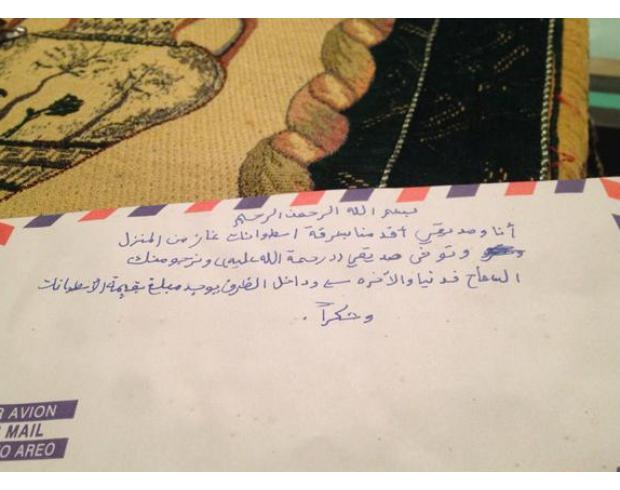 بسم الله الرحمن الرحيم
أنا وصديقي أقدمنا بسرقة اسطوانات غاز من المنزل
وتوفى صديقي ((رحمة الله عليه)) ونرجو منك
السماح فدنيا والآخره وداخل الظرف يوجد مبلغ بقيمة الأسطوانات
وشكراً .
R AVION
MAIL
O AREO